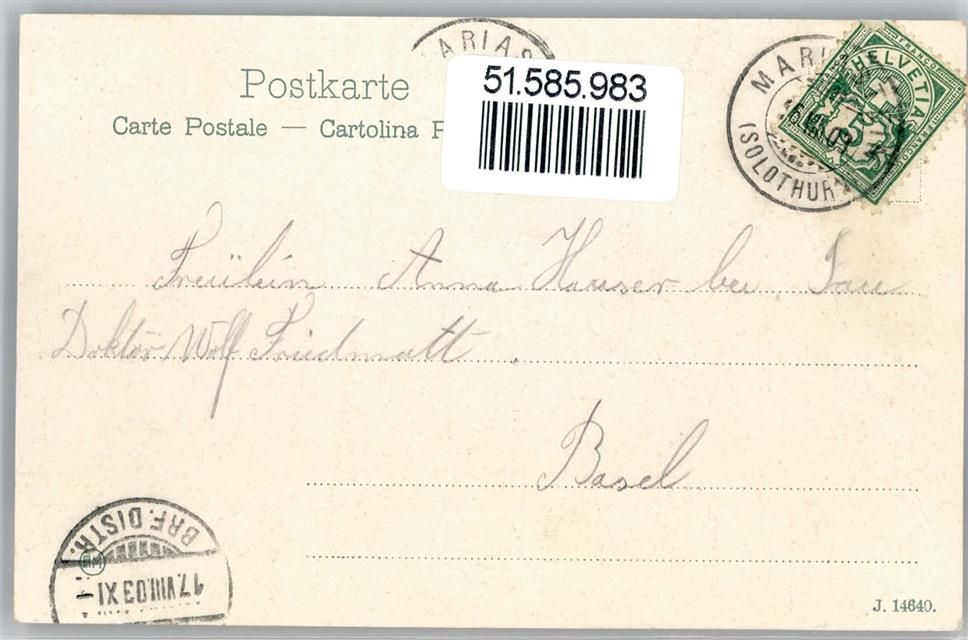 MARIAS
51.585.983
Postkarte
Carte Postale — Cartolina P
MARI
(SOLOTHURN)
16.VIII.03
HELVETIA
FRANCO
FRANCO
5
Fräulein Anna Hauser bei Frau
Doktor Wolf Friedmatt.
Basel
BRF. DISTR.
17.VIII.03 XI-
RM
J. 14640.